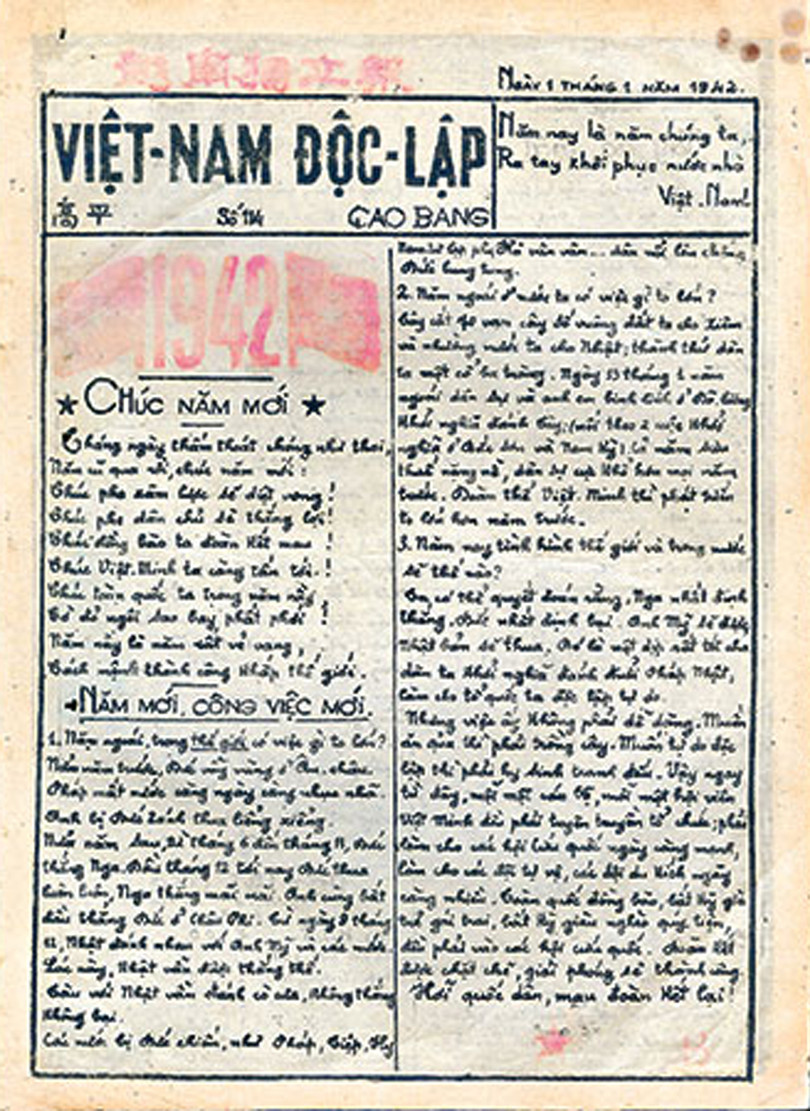 Ngày 1 tháng 1 năm 1942.
VIỆT-NAM ĐỘC-LẬP
高平 Số 114 CAO BANG
Năm nay là năm chúng ta,
Ra tay khôi phục nước nhà
Việt-Nam!
1942
★ CHÚC NĂM MỚI ★
Tháng ngày thấm thoát chóng như thoi,
Năm cũ qua rồi, chúc năm mới:
Chúc phe xâm lược sẽ diệt vong!
Chúc phe dân chủ sẽ thắng lợi!
Chúc đồng bào ta đoàn kết mau!
Chúc Việt-Minh ta càng tấn tới!
Chúc toàn quốc ta trong năm này
Cờ đỏ ngôi sao bay phất phới!
Năm này là năm rất vẻ vang,
Cách mệnh thành công khắp thế giới.
NĂM MỚI, CÔNG VIỆC MỚI.
1. Năm ngoái, trong thế giới có việc gì to lớn?
Nửa năm trước, Đức vẫy vùng ở Âu-châu.
Pháp mất nước càng ngày càng nhục nhã.
Anh bị Đức đánh thua liểng xiểng.
Nửa năm sau, từ tháng 6 đến tháng 11, Đức
thắng Nga. Đầu tháng 12 tới nay Đức thua
luôn luôn, Nga thắng mãi mãi. Anh cũng bắt
đầu thắng Đức ở Châu Phi. Từ ngày 8 tháng
12, Nhật đánh nhau với Anh Mỹ và các nước.
Lúc này, Nhật vẫn được thắng thế.
Tàu với Nhật vẫn đánh cò cưa, không thắng
không bại.
Các nước bị Đức chiếm, như Pháp, Tiệp, Hy
vân vân... dân nổi lên chống
Đức lung tung.
2. Năm ngoái ở nước ta có việc gì to lớn?
Tây cắt 70 vạn cây số vuông đất ta cho Xiêm
và nhường nước ta cho Nhật; thành thử dân
ta một cổ hai tròng. Ngày 13 tháng 1 năm
ngoái dân sự và anh em binh lính ở Đô Lương
khởi nghĩa đánh Tây; (nối theo 2 cuộc khởi
nghĩa ở Bắc Sơn và Nam Kỳ). Cả năm sưu
thuế nặng nề, dân sự cực khổ hơn mọi năm
trước. Đoàn thể Việt-Minh thì phát triển
to lớn hơn năm trước.
3. Năm nay tình hình thế giới và trong nước
sẽ thế nào?
Ta có thể quyết đoán rằng, Nga nhất định
thắng. Đức nhất định bại. Anh Mỹ sẽ được,
Nhật bản sẽ thua. Đó là một dịp rất tốt cho
dân ta khởi nghĩa đánh đuổi Pháp Nhật,
làm cho tổ quốc ta độc lập tự do.
Những việc ấy không phải dễ dàng. Muốn
ăn quả thì phải trồng cây. Muốn tự do độc
lập thì phải hy sinh tranh đấu. Vậy ngay
từ đây, mỗi một cán bộ, mỗi một hội viên
Việt Minh đều phải tuyên truyền tổ chức; phải
làm cho các hội cứu quốc ngày càng mạnh,
làm cho các đội tự vệ, các đội du kích ngày
càng nhiều. Toàn quốc đồng bào, bất kỳ già
trẻ gái trai, bất kỳ giàu nghèo quý tiện,
đều phải vào các hội cứu quốc. Đoàn kết
được chặt chẽ, giải phóng sẽ thành công.
Hỡi quốc dân, mau đoàn kết lại!